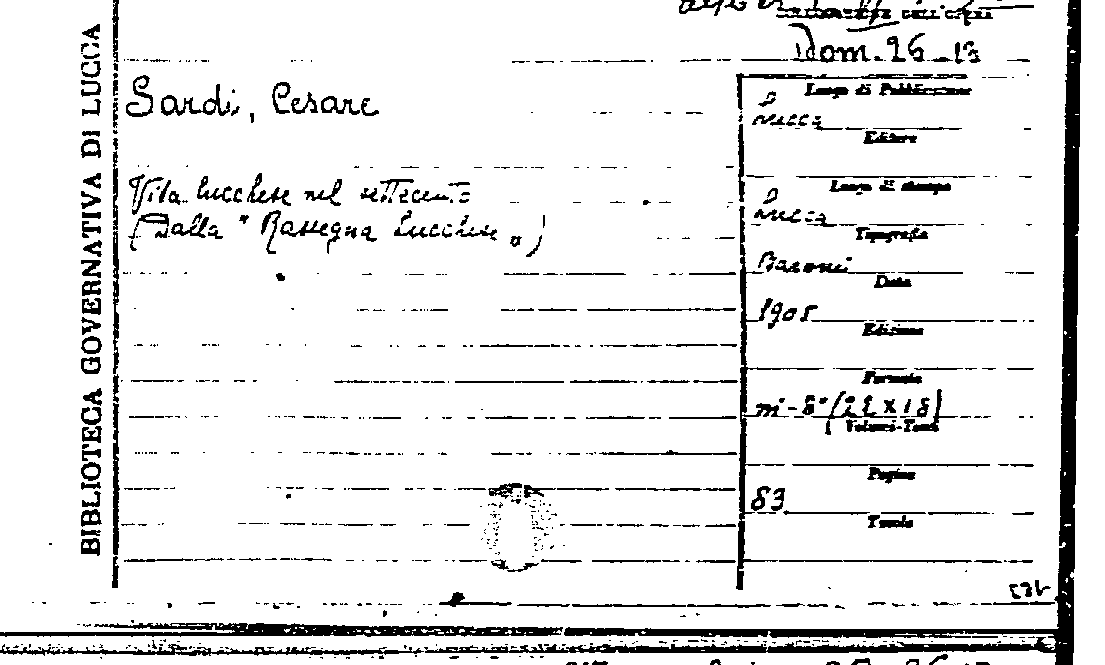 BIBLIOTECA GOVERNATIVA DI LUCCA
COLLOCAZIONE DELL'OPERA
Dom. 26-13
Sardi, Cesare
Vita lucchese nel settecento
(Dalla "Rassegna Lucchese")
Luogo di Pubblicazione
Lucca
Editore
Luogo di stampa
Lucca
Tipografia
Baroni
Data
1905
Edizione
Formato
in-8°
Volumi-Tomi
Pagine
83
Tavole